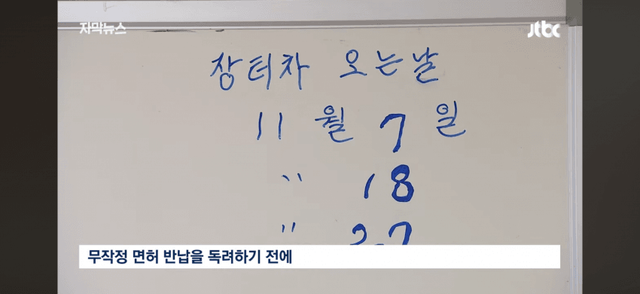 자막뉴스
jtbc
장터차 오는날
11 월 7 일
〃 18
〃 27
무작정 면허 반납을 독려하기 전에